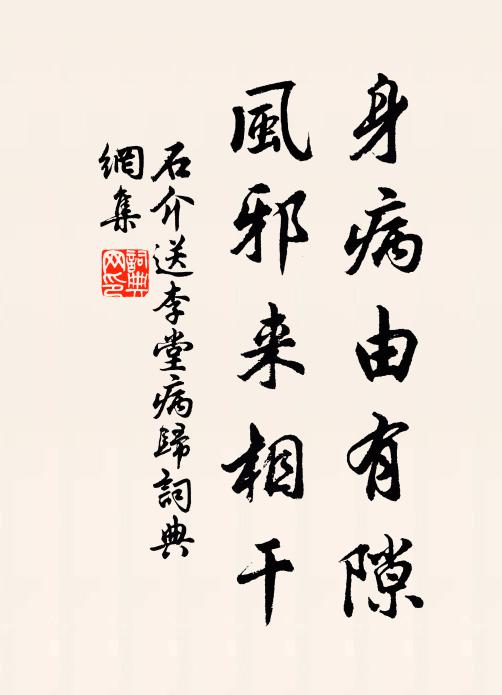 身病由有隙
風邪来相干
石介送李堂病歸詞典
網集
詞典
网印